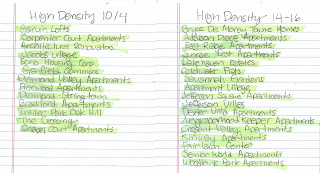 High Density 10/4
Baron Lofts
Carpenter Court Apartments
Architectural Renovators
Jacobs Village
Echo Housing Corp
Garfield Commons
Diamond Valley Apartments
Pinewood Apartments
Diamond Stringtown
Bradford Apartments
Trailer Park Oak Hill
The Crossings
Chapel Court Apartments
High Density 14-16
Bryce De Morey Towne Homes
Addison Place Apartments
East Ridge Apartments
Sunrise East Apartments
Lakehaven Estates
Coldwater Flats
Savannah Gardens
Apartment Village
Jefferson Square Apartments
Jefferson Villas
Dover Villa Apartments
Neighborhood Keeper Apartments
Crescent Valley Apartments
Kinway Apartments
Fairlawn Center
Senior World Apartments
Woodland Park Apartments